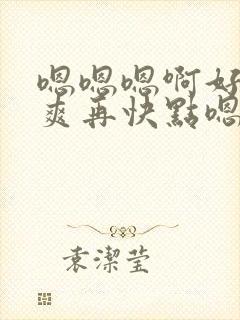 嗯嗯嗯啊好
爽再快點嗯
袁潔莹